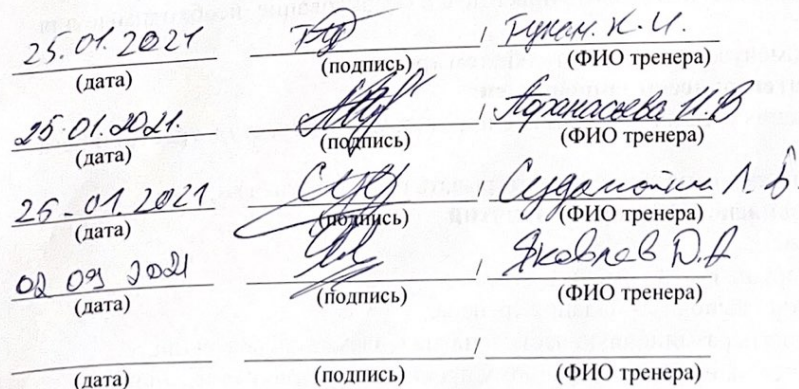 25.01.2021 / Тукан. К.И.
(дата) (подпись) (ФИО тренера)
25.01.2021. / Афанасьева И.В
(дата) (подпись) (ФИО тренера)
26-01.2021 / Л.Б.
(дата) (подпись) (ФИО тренера)
02 09 2021 / Яковлев Д.А
(дата) (подпись) (ФИО тренера)
/
(дата) (подпись) (ФИО тренера)